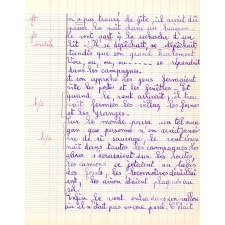 n'a pas trouvé de gîte, il avait dû
passer la nuit dans un hangar
le vent part à la recherche d'un
lit ! Il se dépêchait, se dépêchait
tandis que son grand hurlement
You, ou, ou, ou se répandait
dans les campagnes.
A son approche les gens fermaient
vite les portes et les fenêtres. Et
quand le vent arrivait, il trou-
vait fermées les villas, les fermes
et les granges.
Sur le monde passa un tel oura-
gan que personne n'en avait jamais
vu de si sauvage. Le vent hur-
lait dans toute les campagnes, les
arbres s'écrasaient sur les routes,
les camions se jetaient au
des , les locomotives déraillai-
ent, les avions étaient plaqués au
sol.
Enfin le vent entra dans un vallon
où il n'était pas encore passé. C'était